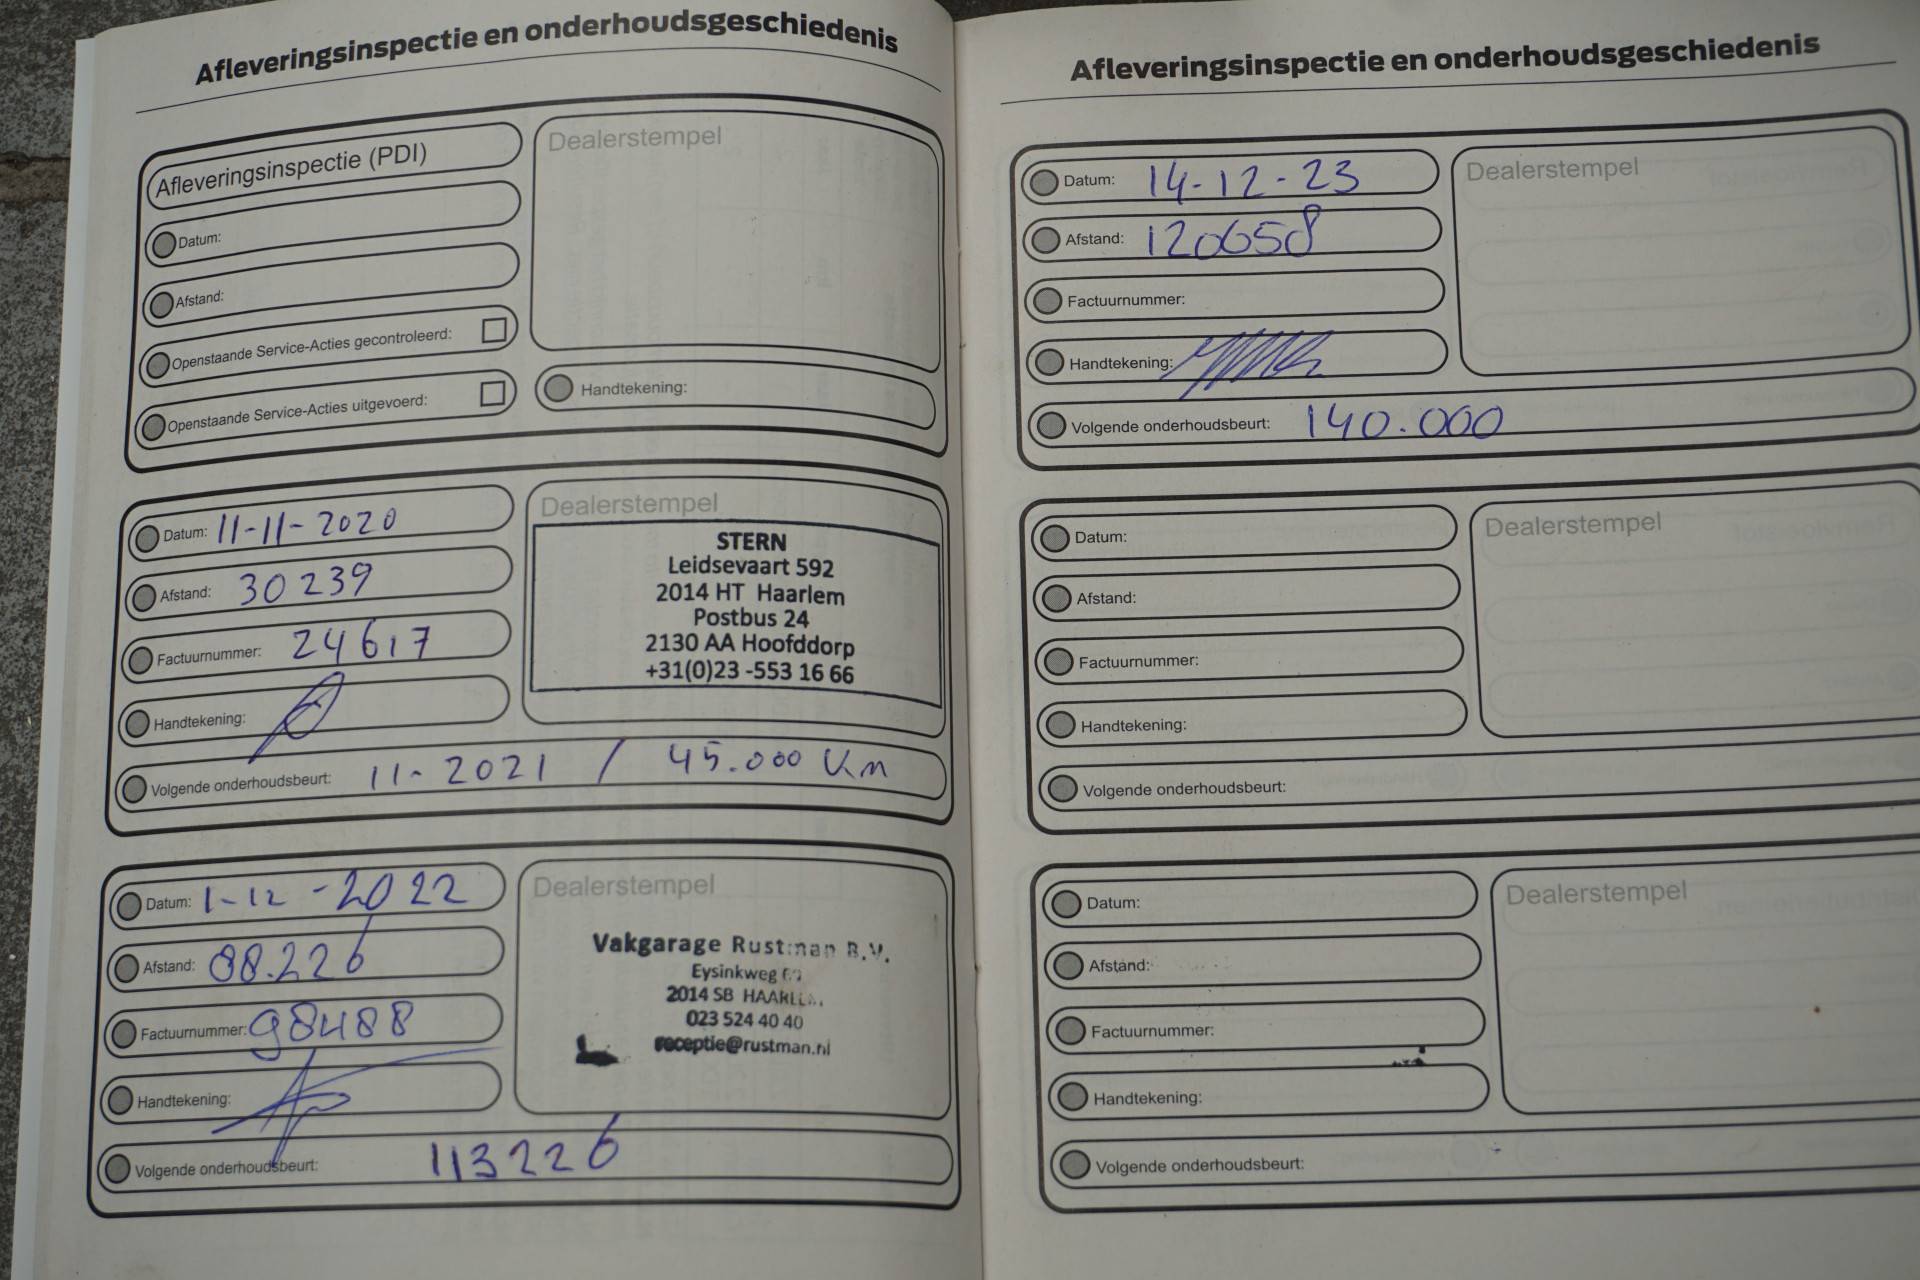 Afleveringsinspectie en onderhoudsgeschiedenis
Afleveringsinspectie (PDI)
Datum:
Afstand:
Openstaande Service-Acties gecontroleerd:
Openstaande Service-Acties uitgevoerd:
Dealerstempel
Handtekening:
Datum: 11-11-2020
Afstand: 30239
Factuurnummer: 24617
Handtekening:
Volgende onderhoudsbeurt: 11-2021 / 45.000 Km
Dealerstempel
STERN
Leidsevaart 592
2014 HT Haarlem
Postbus 24
2130 AA Hoofddorp
+31(0)23 -553 16 66
Datum: 1-12-2022
Afstand: 88.226
Factuurnummer: 98488
Handtekening:
Volgende onderhoudsbeurt: 113226
Dealerstempel
Vakgarage Rustman B.V.
Eysinkweg
2014 SB HAARLEM
023 524 40 40
receptie@rustman.nl
Afleveringsinspectie en onderhoudsgeschiedenis
Datum: 14-12-23
Afstand: 120658
Factuurnummer:
Handtekening:
Volgende onderhoudsbeurt: 140.000
Dealerstempel
Datum:
Afstand:
Factuurnummer:
Handtekening:
Volgende onderhoudsbeurt:
Dealerstempel
Datum:
Afstand:
Factuurnummer:
Handtekening:
Volgende onderhoudsbeurt:
Dealerstempel